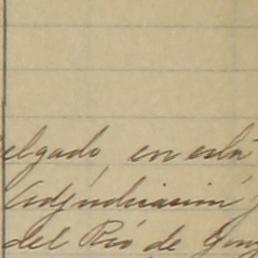 elgado, en esta
Adjudicación y
del Rio de